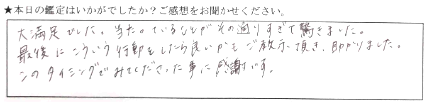 ★本日の鑑定はいかがでしたか？ご感想をお聞かせください。
大満足でした。当たっていることがその通りすぎて驚きました。
最後にこういう行動をしたら良いかもご教示頂き、助かりました。
このタイミングでみてくださった事に感謝です。